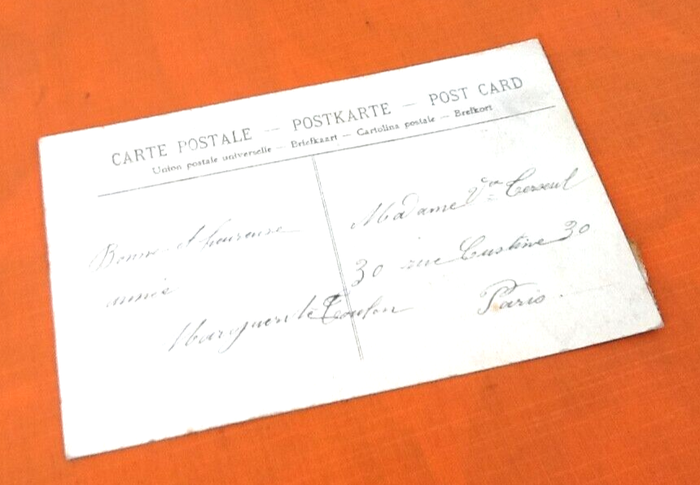 CARTE POSTALE — POSTKARTE — POST CARD
Union postale universelle — Briefkaart — Cartolina postale — Brefkort
Bonne et heureuse
année
Marguerite Toulon
Madame Vve
30 rue Custine 30
Paris.